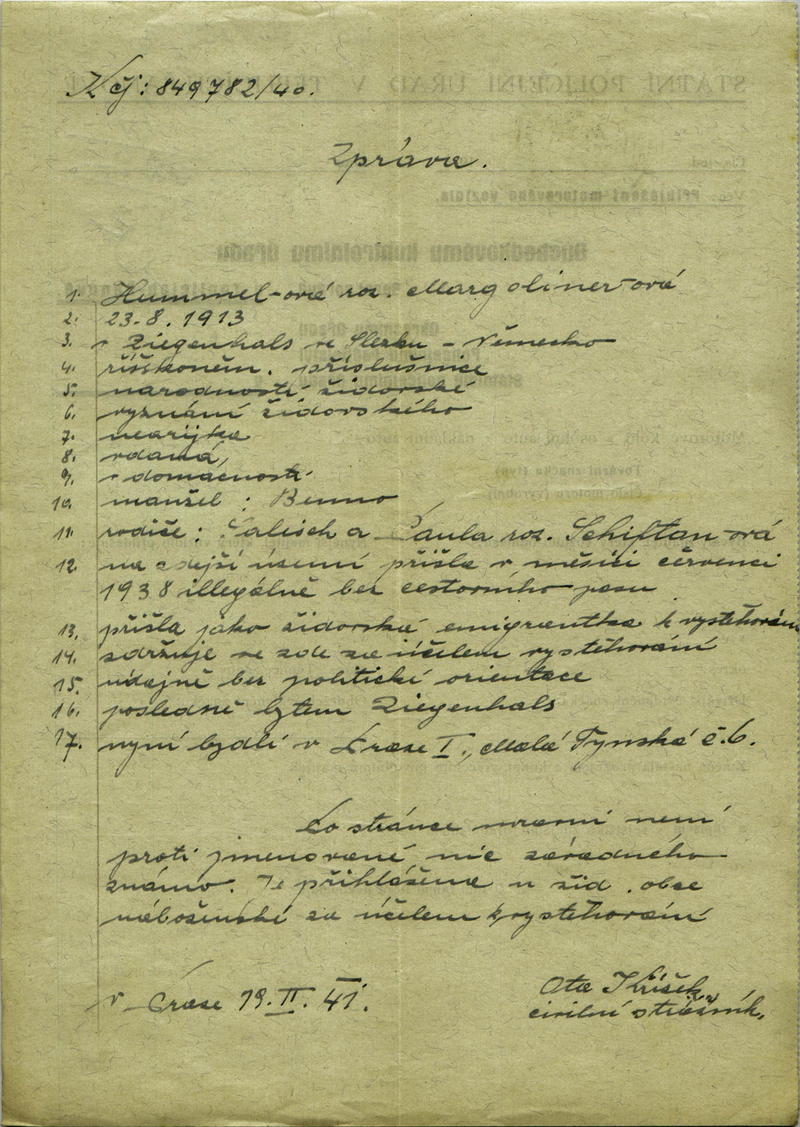 K čj: 849782/40.
Zpráva.
1. Hummel-ová roz. Margoliner-ová
2. 23.8.1913
3. v Ziegenhals ve Slezku - Německo
4. říšskoněm. příslušnice
5. národnosti židovské
6. vyznání židovského
7. nearijka
8. vdaná,
9. v domácnosti
10. manžel: Benno
11. rodiče: Salisch a Paula roz. Schiftan-ová
12. na zdejší území přišla v měsíci červenci
1938 illegálně bez cestovního pasu
13. přišla jako židovská emigrantka k vystěhování
14. zdržuje se zde za účelem vystěhování
15. údajně bez politické orientace
16. posledně bytem Ziegenhals
17. nyní bydlí v Praze I., Malá Týnská č.6.
Po stránce mravní není
proti jmenované nic závadného
známo. Je přihlášena u žid. obce
náboženské za účelem vystěhování
v Praze 19.II.41.
Ota Křížek
civilní strážník,
STÁTNÍ POLICEJNÍ ÚŘAD V
Přihlášení motorového vozidla.
Důchodkovému kontrolnímu úřadu